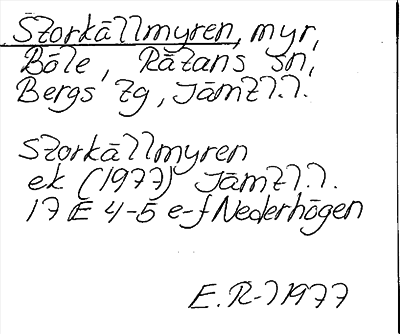 Storkällmyren, myr,
Böle, Rätans sn,
Bergs tg, Jämtl.l.
Storkällmyren
ek (1977) Jämtl.l.
17 E 4-5 e-f Nederhögen
E.R-l 1977